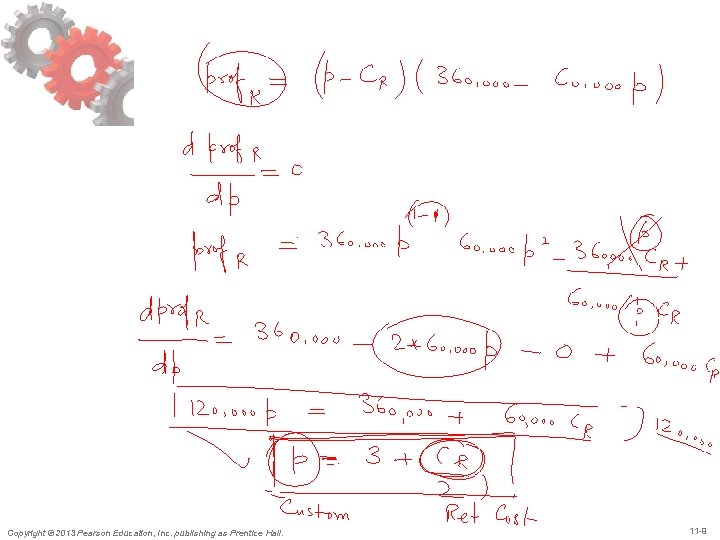 (prof R = (p - CR) (360,000 - 60,000 p)
d prof R / dp = 0
(1-1)
prof R = 360,000 p 60,000 p² - 360,000 p CR +
60,000 CR
d prof R / dp = 360,000 - 2*60,000 p - 0 + 60,000 CR
120,000 p = 360,000 + 60,000 CR ) 120,000
p = 3 + (CR / 2)
Custom Ret Cost
Copyright © 2013 Pearson Education, Inc. publishing as Prentice Hall. 11-9